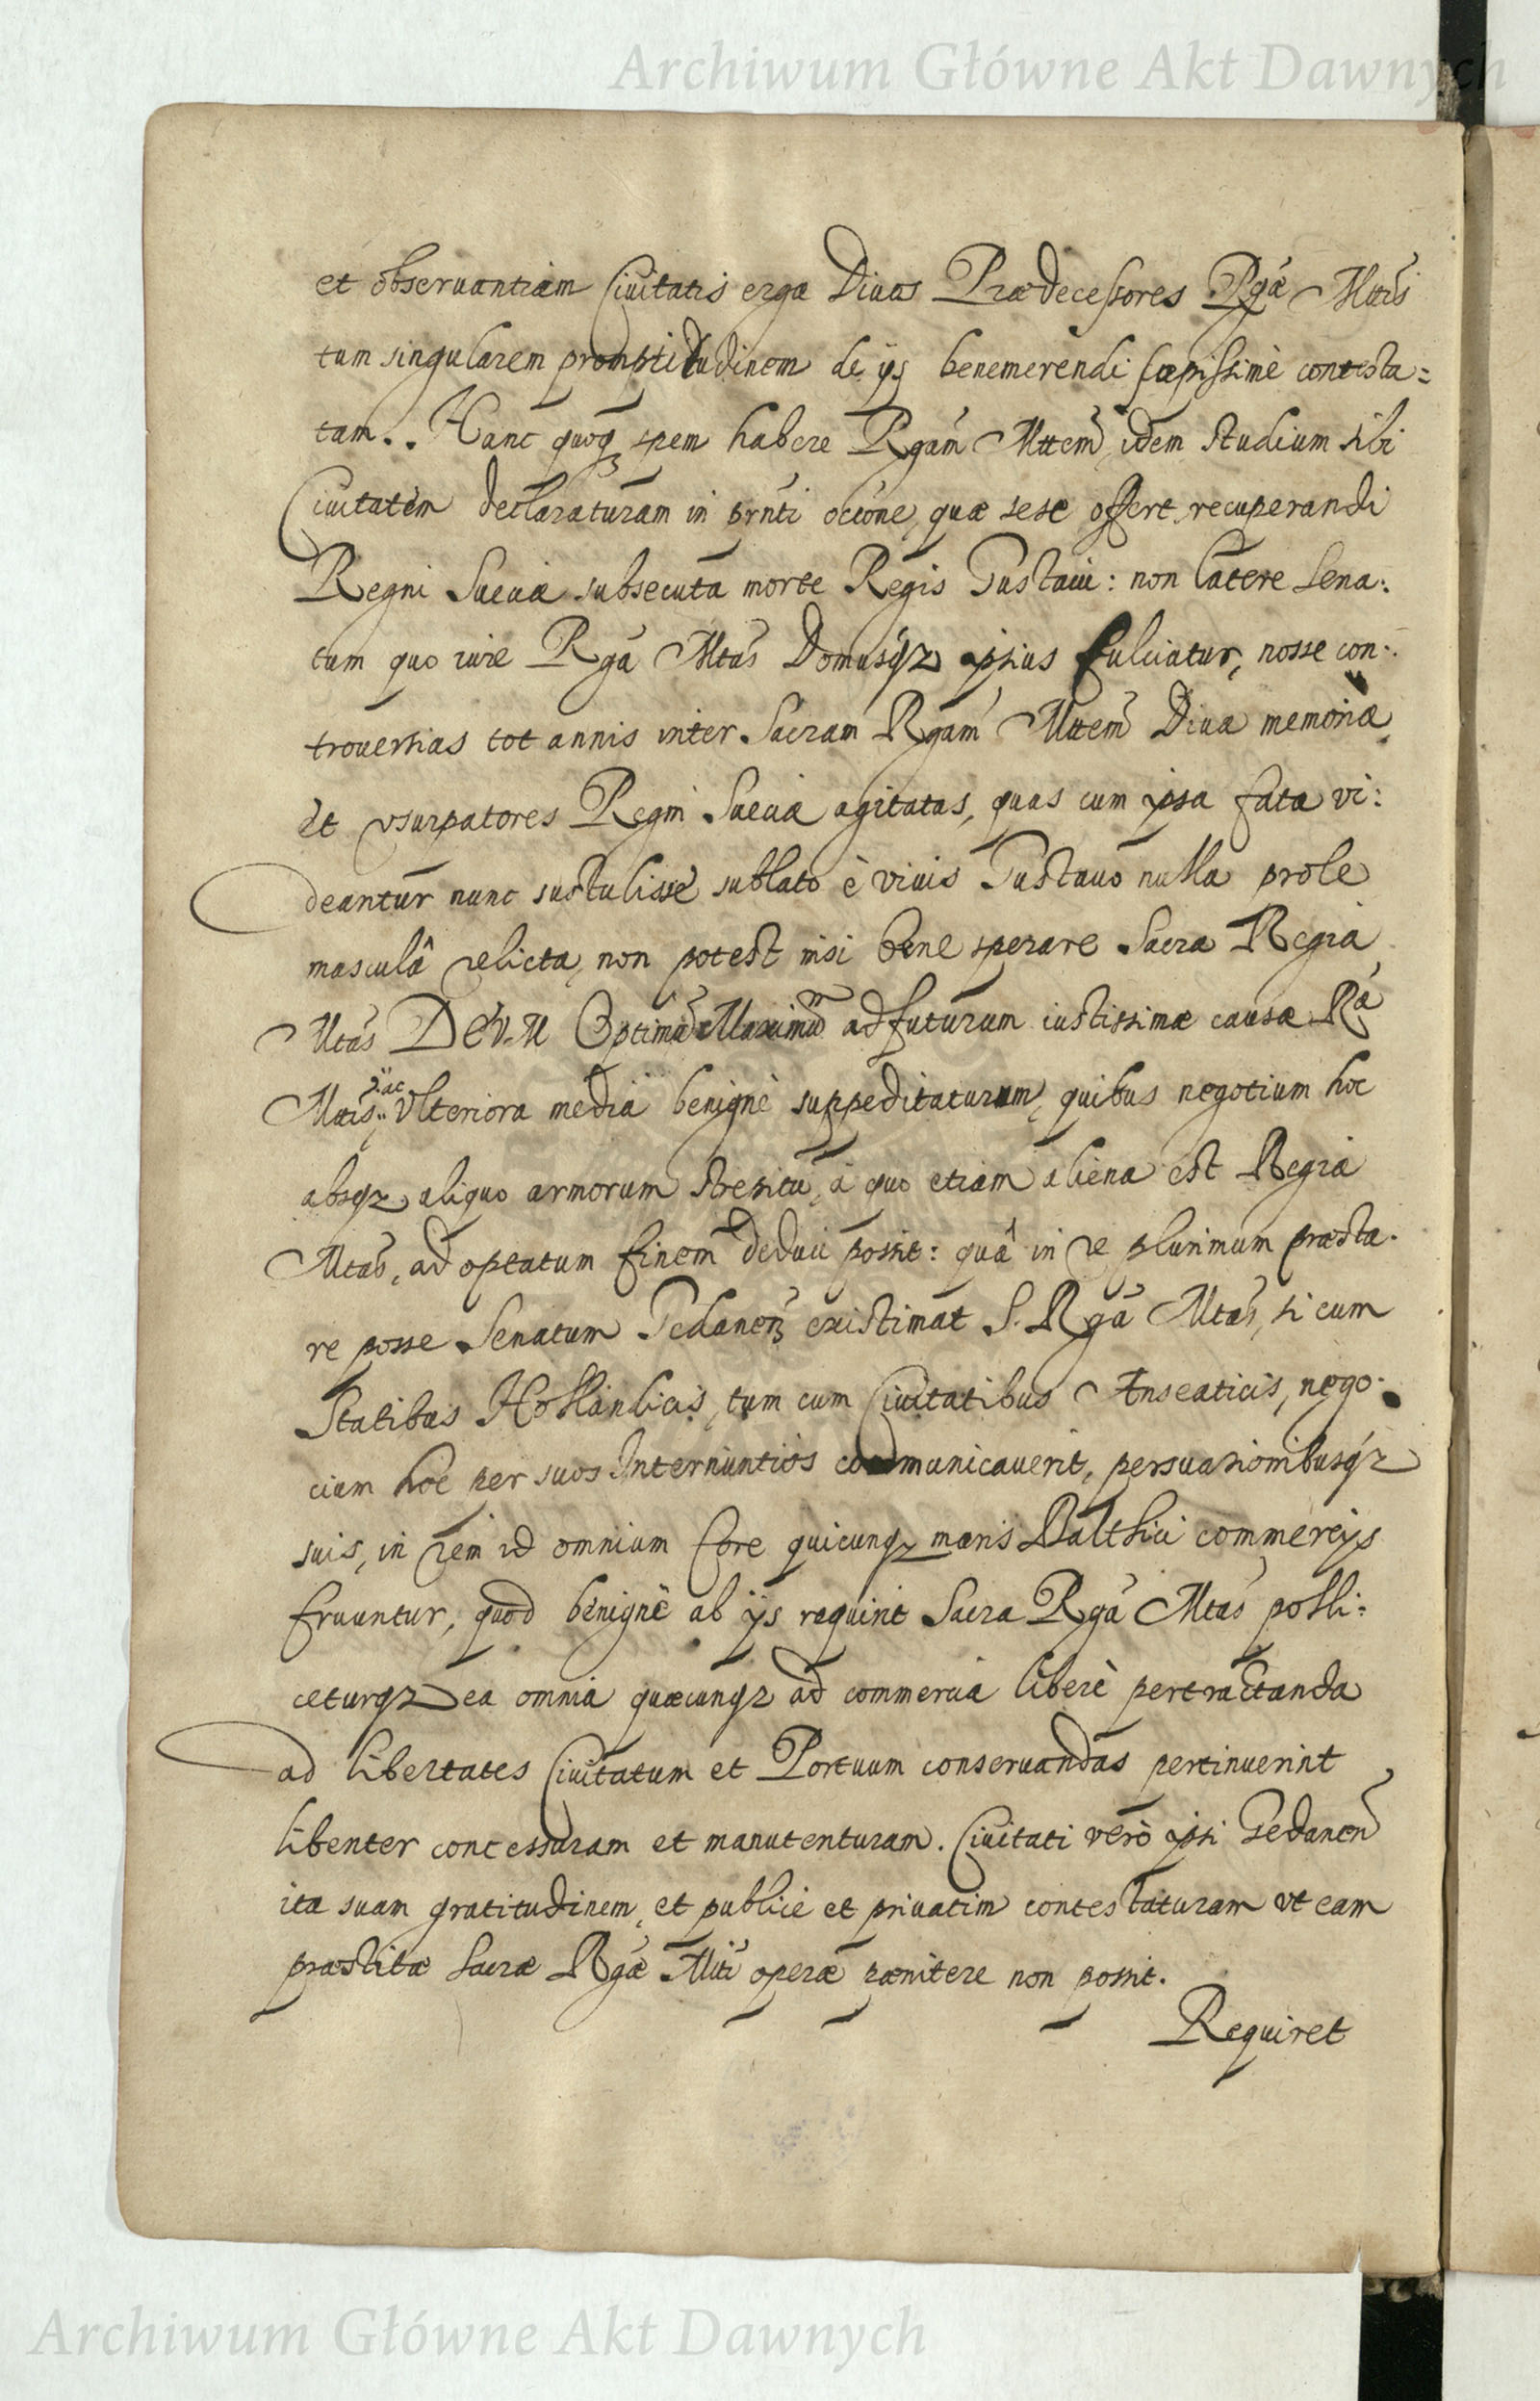 Archiwum Główne Akt Dawnych
et obseruantiam Ciuitatis erga Diuos Prædecessores Rgæ Mttis
tum singularem promptitudinem de ijs benemerendi sæpissimè contesta=
tam. Hanc quoq spem habere Rgam Mttem, idem studium sibi
Ciuitatem declaraturam in prnti occione, quæ sese offert recuperandi
Regni Sueciæ subsecuta morte Regis Gustaui: non latere Sena:
tum quo iure Rga Mtas Domusqz ipsius fulciatur, nosse con:
trouersias tot annis inter Sacram Rgam Mttem Diuæ memoriæ
et vsurpatores Regni Sueciæ agitatas, quas cum ipsa fata vi:
deantur nunc sustulisse sublato è viuis Gustauo nulla prole
masculâ relicta, non potest nisi bene sperare Sacra Regia
Mtas DEVM Optimum Maximum adfuturum iustissimæ causæ Ræ
Mttis ac vlteriora media benignè suppeditaturum, quibus negotium hoc
absqz aliquo armorum strepitu, à quo etiam aliena est Regia
Mtas, ad optatum finem deduci possit: quâ in re plurimum præsta:
re posse Senatum Gedanen existimat S. Rga Mtas, si cum
Statibus Hollandicis, tum cum Ciuitatibus Anseaticis, nego:
cium hoc per suos Internuntios communicauerit, persuasionibusqz
suis, in rem id omnium fore quicunqz maris Balthici commercijs
fruuntur, quod benignè ab ijs requirit Sacra Rga Mtas polli:
ceturqz ea omnia quæcunqz ad commercia liberè pertractanda
ad libertates Ciuitatum et Portuum conseruandas pertinuerint
libenter concessuram et manutenturam. Ciuitati verò ipsi Gedanen
ita suam gratitudinem, et publicè et priuatim contestaturam vt eam
præstitæ Sacræ Rgæ Mtti operæ pænitere non possit.
Requiret
Archiwum Główne Akt Dawnych